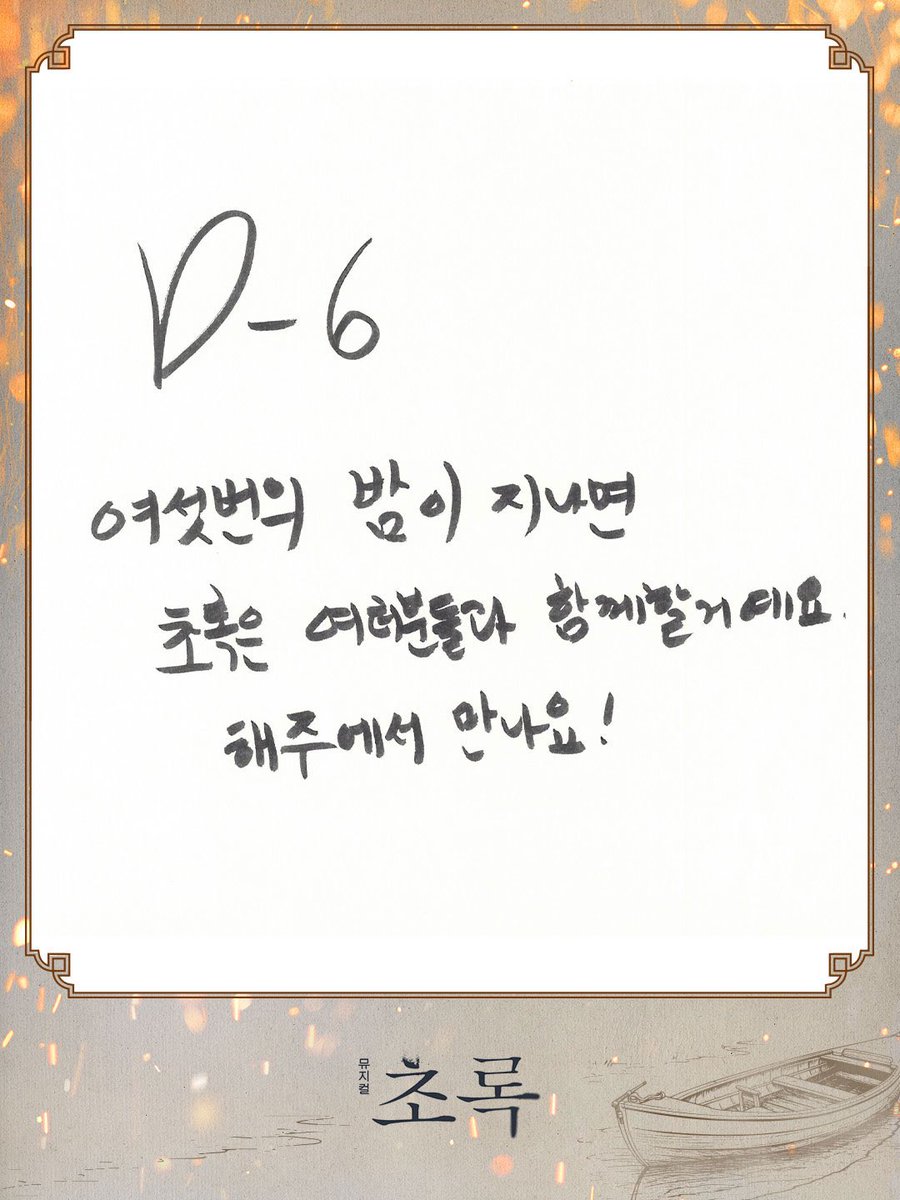 D-6
여섯번의 밤이 지나면
초록은 여러분들과 함께할거예요.
해주에서 만나요!
뮤지컬
초록